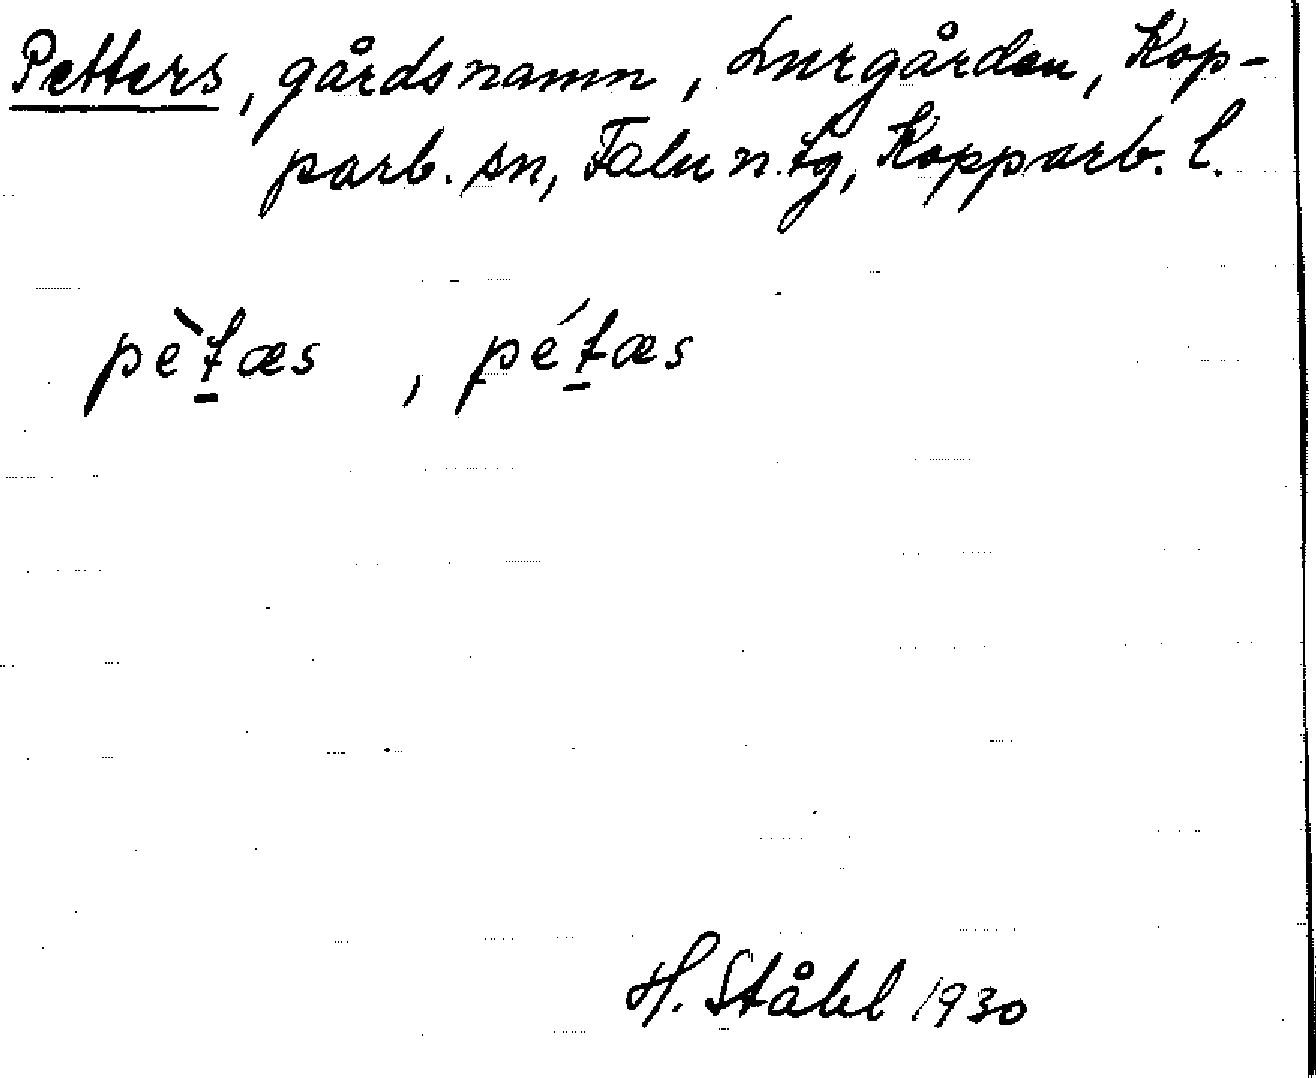 Petters, gårdsnamn, Lurgården, Kop-
parb. sn, Falu n. tg, Kopparb. l.
pèt̠æs, pét̠æs
H. Ståhl 1930